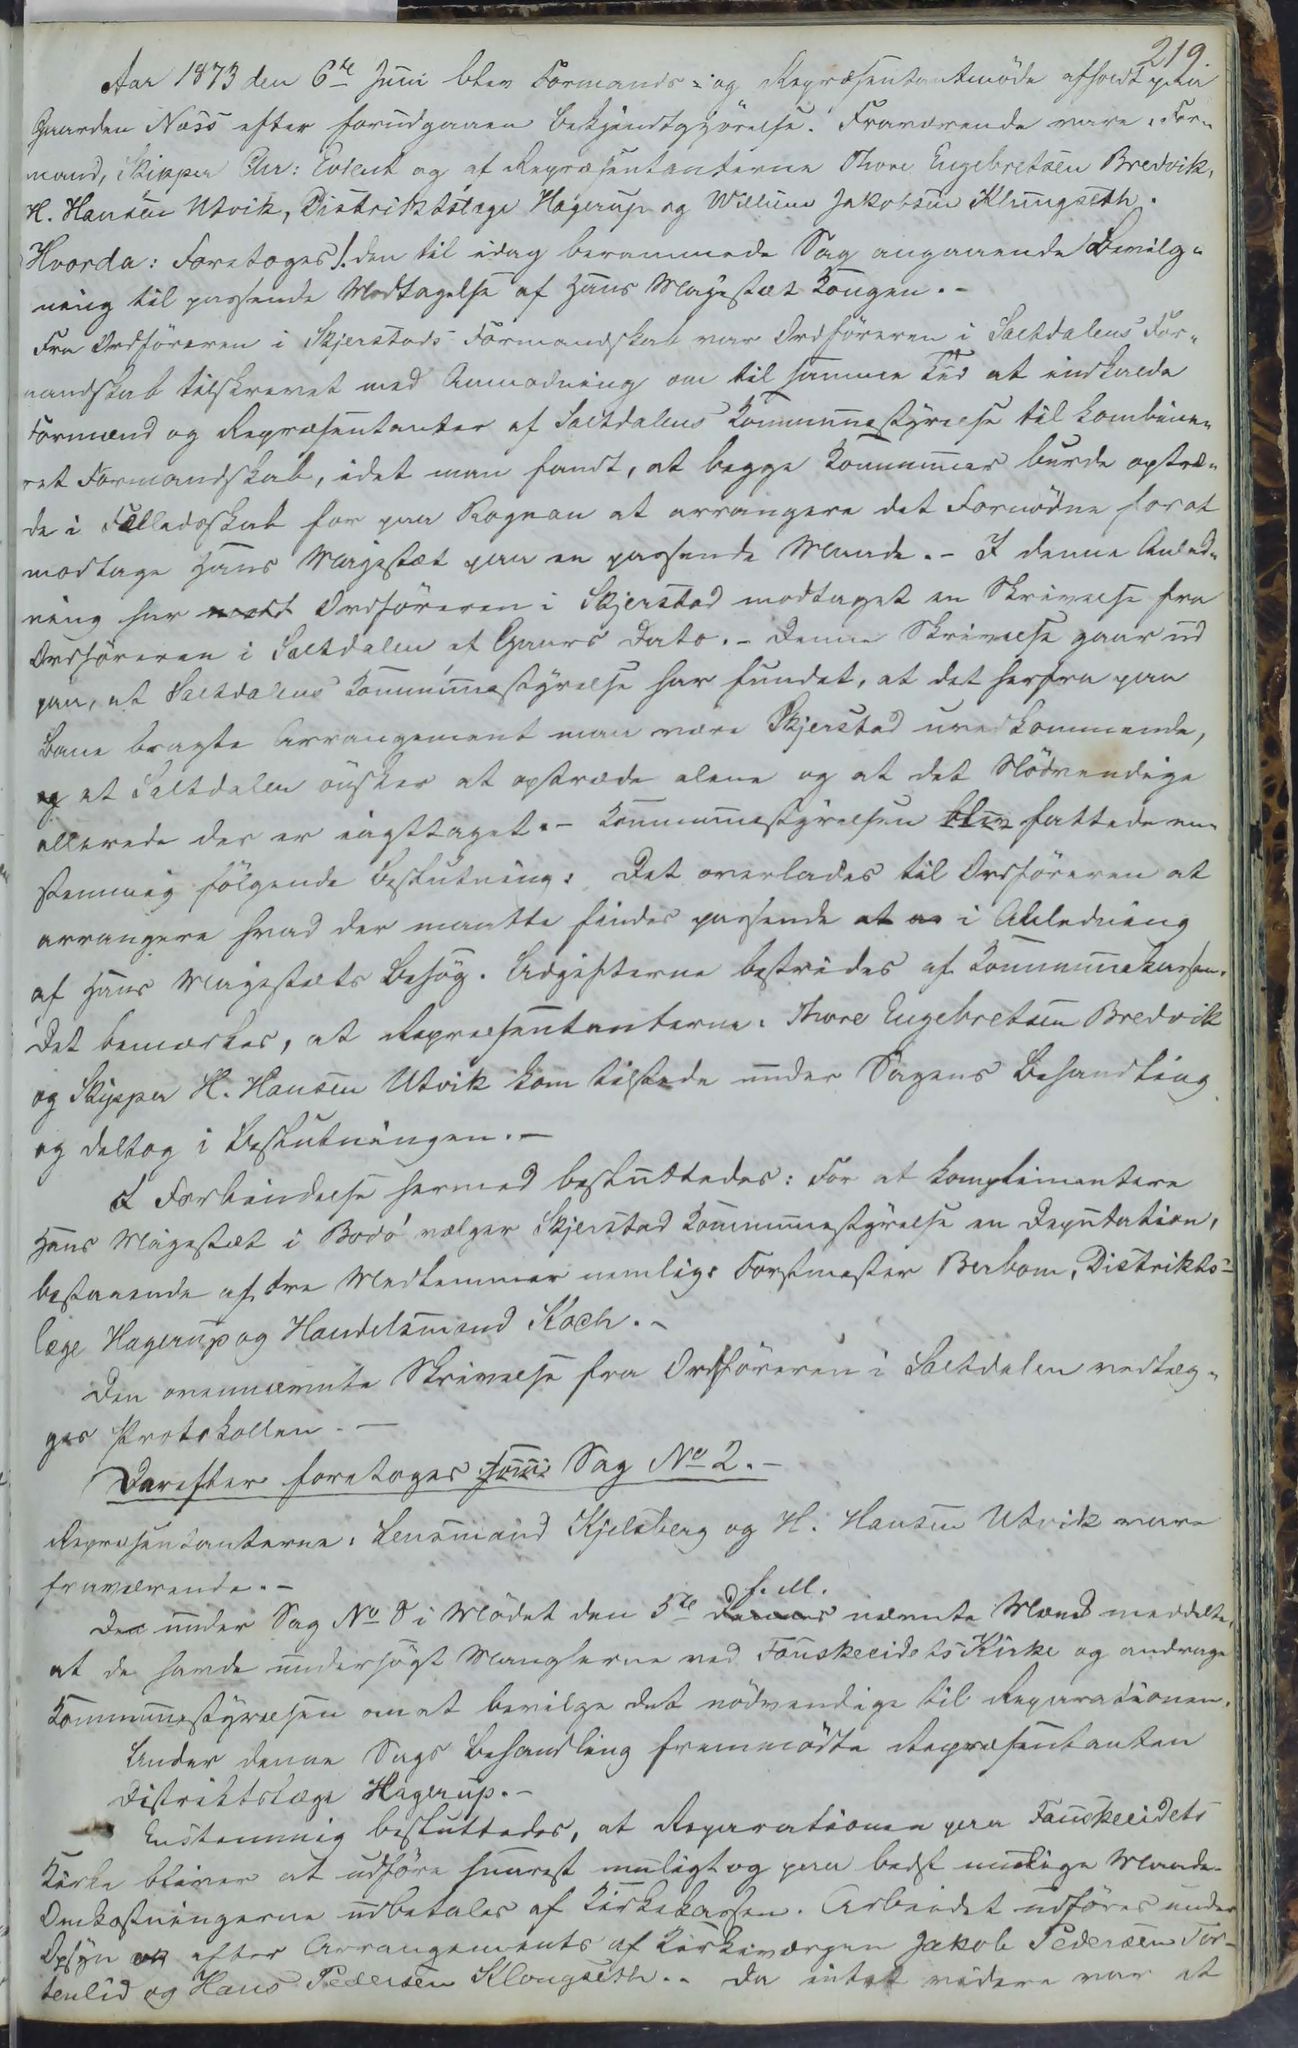 219.
Aar 1873 den 6te Juni blev Formands- og Repræsentantmöde afholdt paa
Gaarden Næss efter forudgaaen Bekjendtgjörelse. Fraværende vare: For-
mand, Skipper Chr: Evient og af Repræsentanterne Thore Engebretsen Bredvik,
H. Hansen Utvik, Distriktslæge Hagerup og Willum Jakobsen Klungseth.
Hvorda: Foretoges 1. den til idag berammede Sag angaaende Bevilg-
ning til passende Modtagelse af Hans Majestæt Kongen. -
Fra Ordföreren i Skjerstads Formandskab var Ordföreren i Saltdalens For-
mandskab tilskrevet med Anmodning om til samme Tid at indkalde
Formænd og Repræsentanter af Saltdalens Kommunestyrelse til kombine-
ret Formandskab, idet man fandt, at begge Kommuner burde optræ-
de i Fælledsskab for paa Rognan at arrangere det Fornödne for at
modtage Hans Majestæt paa en passende Maade. - I denne Anled-
ning har modt Ordföreren i Skjerstad modtaget en Skrivelse fra
Ordföreren i Saltdalen af Gaars Dato. - Denne Skrivelse gaar ud
paa, at Saltdalens Kommunestyrelse har fundet, at det herfra paa
Bane bragte Arrangement maa være Skjerstad uvedkommende,
og at Saltdalen önsker at optræde alene og at det Nödvendige
allerede der er iagttaget. - Kommunestyrelsen blev fattede en-
stemmig fölgende Beslutning: Det overlades til Ordföreren at
arrangere hvad der maatte findes passende at ar i Anledning
af Hans Majestæts Besög. Udgifterne bestrides af Kommunekassen.
Det bemærkes, at Repræsentanterne: Thore Engebretsen Bredvik
og Skipper H. Hansen Utvik kom tilstede under Sagens Behandling
og deltog i Beslutningen. -
I Forbindelse hermed besluttedes: For at komplimentere
Hans Majestæt i Bodö vælger Skjerstad Kommunestyrelse en Deputation,
bestaaende af tre Medlemmer nemlig: Forstmester Berbom, Distrikts-
læge Hagerup og Handelsmand Koch. -
Den ovennævnte Skrivelse fra Ordföreren i Saltdalen vedlæg-
ges Protokollen. -
Derefter foretoges Sag No 2. -
Repræsentanterne: Lensmand Kjelsberg og H. Hansen Utvik vare
fraværende. -
De under Sag No 8 i Mödet den 5te f. M. nævnte Mænd meddelte,
at de havde undersögt Manglerne ved Fauskeeidets Kirke og androge
Kommunestyrelsen om at bevilge det nödvendige til Reparationen.
Under denne Sags Behandling fremmödte Repræsentanten
Distriktslæge Hagerup. -
Enstemmig besluttedes, at Reparationen paa Fauskeeidets
Kirke bliver at udföre snarest muligt og paa bedst mulige Maade.
Omkostningerne udbetales af Kirkekassen. Arbeidet udföres under
Opsyn og efter Arrangements af Kirkeværgen Jakob Pedersen Tor-
tenlid og Hans Pedersen Klongseth. - Da intet videre var at